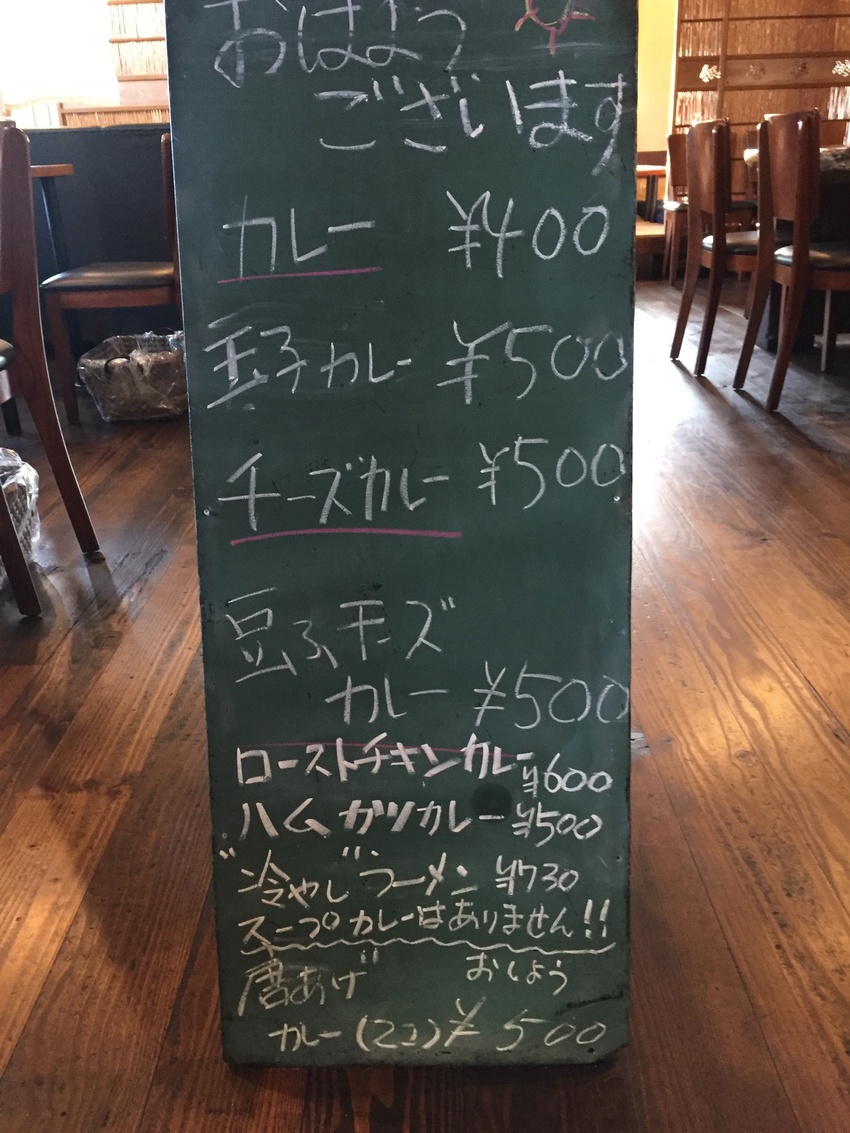 おはよう
ございます
カレー ¥400
玉子カレー ¥500
チーズカレー ¥500
豆ふチーズ
カレー ¥500
ローストチキンカレー ¥600
ハムカツカレー ¥500
"冷やし"ラーメン ¥730
スープカレーはありません!!
唐あげ おしょう
カレー(2コ)¥500